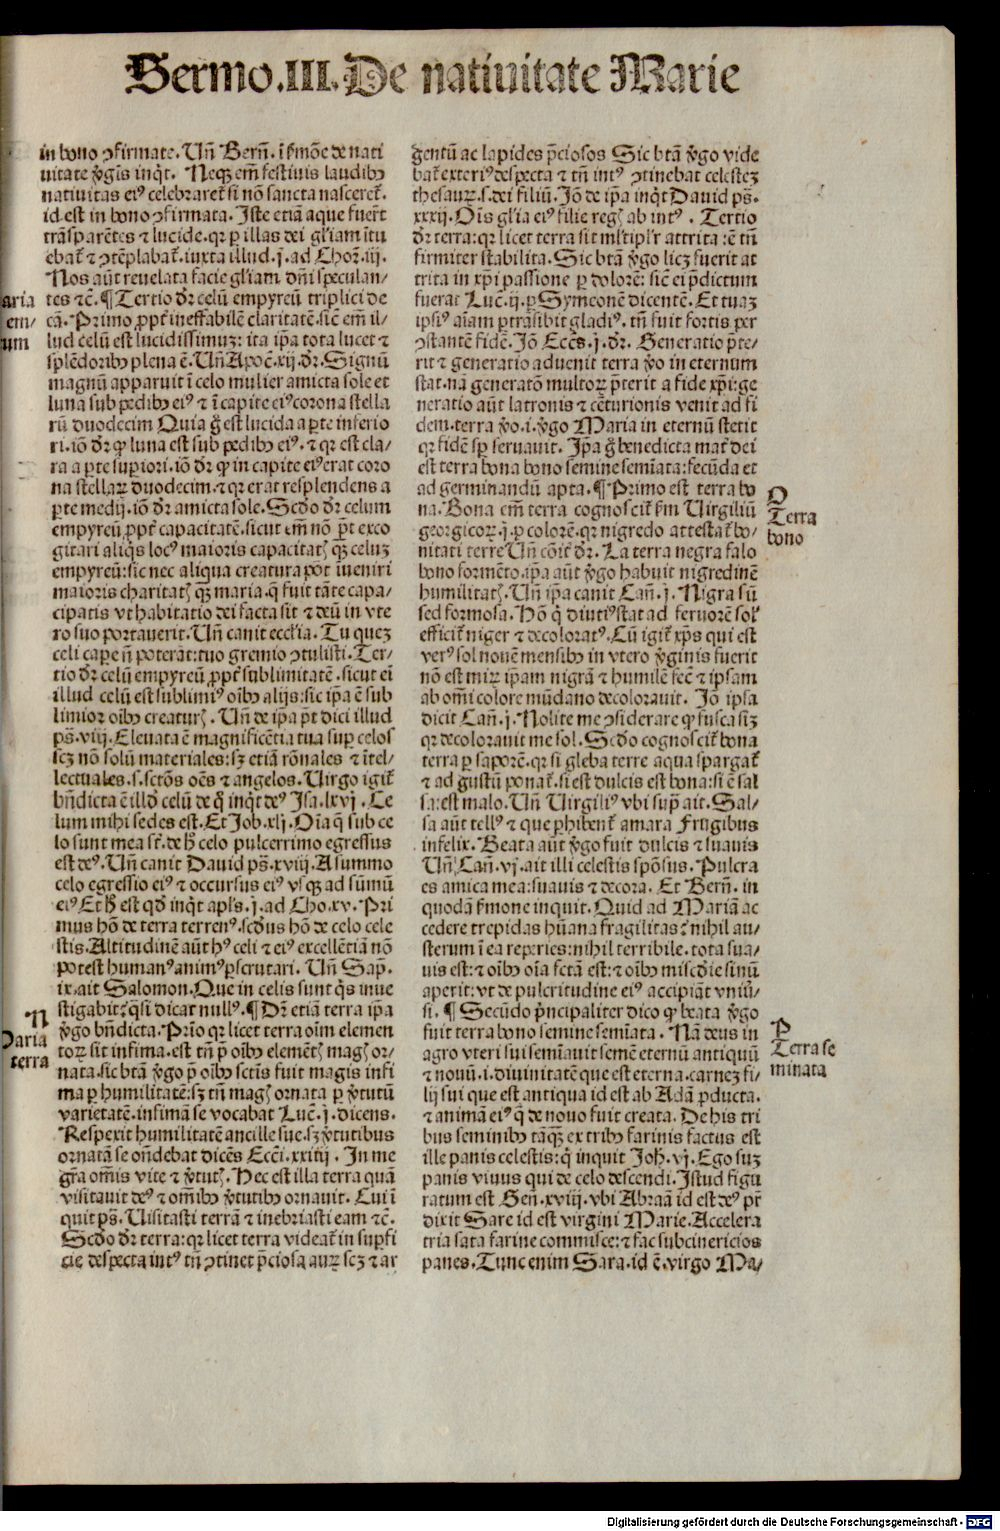 Sermo.III.De natiuitate Marie
in bono ꝯfirmate. Un̄ Bern̄. ī ẜmōe de nati
uitate v̾gīs inqͥt. Neqꝫ em̄ festiuis laudibꝰ
natiuitas eiꝰ celebraret᷑ si nō sancta nasceret᷑.
id est in bono ꝯfirmata. Iste etiā aque fuer̄t
trāsparētes ⁊ lucide. qꝛ ꝑ illas dei gl̓iam ītu
ebat᷑ ⁊ ꝯtēplabat᷑. iuxta illud. j. ad Choꝝ. iij.
Nos aūt reuelata facie gl̓iam dn̄i speculan-
tes ⁊c̄. ¶ Tertio dr̄ celū empyreū triplici de
cā. Primo ꝓpt̓ ineffabilē claritatē. sic̄ em̄ il/
lud celū est lucidissimuꝫ: ita ip̄a tota lucet ⁊
splēdoribꝰ plena ē. Un̄ Apoc̄. xij. dr̄. Signū
magnū apparuit ī celo mulier amicta sole et
luna sub pedibꝰ eiꝰ ⁊ ī capite eiꝰ corona stella
rū duodecim Quia g̊ est lucida a ꝑte inferio
ri. iō dr̄ ꝙ luna est sub pedibꝰ eiꝰ. ⁊ qꝛ est cla/
ra a ꝑte suꝑiori. iō dr̄ ꝙ in capite eiꝰ erat coro
na stellaꝝ duodecim. ⁊ qꝛ erat resplendens a
ꝑte medij. iō dr̄ amicta sole. Scd̓o dr̄ celum
empyreū ꝓpt̓ capacitatē. sicut em̄ nō p̄t exco
gitari aliqͥs locꝰ maioris capacitatꝭ qꝫ celuꝫ
empyreū: sic nec aliqua creatura pōt īueniri
maioris charitatꝭ qꝫ maria. q̄ fuit tāte capa/
cipatis vt habitatio dei facta sit ⁊ deū in vte
ro suo portauerit. Un̄ canit eccl̓ia. Tu queꝫ
celi caꝑe n̄ poterāt: tuo gremio ꝯtulisti. Ter-
tio dr̄ celū empyreū ꝓpt̓ sublimitatē. sicut ei̅
illud celū est sublimiꝰ oībꝰ alijs: sic ip̄a ē sub
limior oībꝰ creaturꝭ. Un̄ de ip̄a p̄t dici illud
ps̄. viij. Eleuata ē magnificētia tua suꝑ celos
scꝫ nō solū materiales: sꝫ etiā rōnales ⁊ ītel-
lectuales. s. sctōs oēs ⁊ angelos. Uirgo igit᷑
bn̄dicta ē ill̓d celū de q̊ inqͥt deꝰ Isa. lxvj. Ce
lum mihi sedes est. Et Iob. xlj. Oīa q̄ sub ce
lo sunt mea st̄. de h̊ celo pulcerrimo egressus
est deꝰ. Un̄ canit Dauid ps̄. xviij. A summo
celo egressio eiꝰ ⁊ occursus eiꝰ vsqꝫ ad sūmū
eiꝰ Et h̊ est qd̓ inqͥt apl̓s. j. ad Cho. xv. Pri
mus hō de terra terrenꝰ. scd̓us hō de celo cele
stis. Altitudinē aūt hꝰ celi ⁊ eiꝰ excellētiā nō
potest humanꝰ animꝰ ꝑscrutari. Un̄ Sap̄.
ix. ait Salomon. Que in celis sunt qͥs inue
stigabit? qͣsi dicat nullꝰ. ¶ Dr̄ etiā terra ip̄a
v̾go bn̄dicta. Prīo qꝛ licet terra oīm elemen
toꝝ sit infima. est tn̄ p̄ oībꝰ elemētꝭ magꝭ or/
nata. sic btā v̾go p̄ oībꝰ sctīs fuit magis infi
ma ꝑ humilitatē: sꝫ tn̄ magꝭ ornata ꝑ v̾tutū
varietatē. infimā se vocabat Luc̄. j. dicens.
Respexit humilitatē ancille sue. sꝫ v̾tutibus
ornatā se on̄debat dicēs Ecci̅. xxiiij. In me
gr̄a om̄is vite ⁊ v̾tutꝭ. Hec est illa terra quā
visitauit deꝰ ⁊ om̄ibꝰ v̾tutibꝰ ornauit. Cui ī
quit ps̄. Uisitasti terrā ⁊ inebriasti eam ⁊c̄.
Scd̓o dr̄ terra: qꝛ licet terra videat᷑ in suꝑfi
cie despecta intꝰ tn̄ ꝯtinet p̄ciosa auꝝ scꝫ ⁊ ar
gentū ac lapides p̄ciosos Sic btā v̾go vide
bat᷑ exteriꝰ despecta ⁊ tn̄ intꝰ ꝯtinebat celesteꝫ
thesauꝝ. s. dei filiū. Iō de ip̄a inqͥt Dauid ps̄.
xxxij. Oīs gl̓ia eiꝰ filie regꝭ ab intꝰ. Tertio
dr̄ terra: qꝛ licet terra sit ml̓tipl̓r attrita: ē tn̄
firmiter stabilita. Sic btā v̾go licꝫ fuerit at
trita in xp̄i passione ꝑ dolorē: sic̄ ei p̄dictum
fuerat Luc̄. ij. ꝑ Symeonē dicentē. Et tuaꝫ
ipsiꝰ aīam ꝑtrāsibit gladiꝰ. tn̄ fuit fortis ꝑer
ꝯstantē fidē. Iō Eccs̄. j. dr̄. Generatio p̄te-
rit ⁊ generatio aduenit terra v̊o in eternum
stat. nā generatō multoꝝ p̄terit a fide xp̄i: ge
neratio aūt latronis ⁊ cēturionis venit ad fi
dem. terra v̊o. i. v̾go Maria in eternū stetit
qꝛ fidē sꝑ seruauit. Ip̄a g̊ benedicta mat̓ dei
est terra bona bono semine semīata: fecūda et
ad germinandū apta. ¶ Primo est terra bo
na. Bona em̄ terra cognoscit᷑ ẜm Uirgiliū
georgicoꝝ. ij. ꝑ colorē. qꝛ nigredo attestat᷑ bo-
nitati terre Un̄ cōit̓ dr̄. La terra negra fa lo
bono formēto. ip̄a aūt v̾go habuit nigredinē
humilitatꝭ. Un̄ ip̄a canit Can̄. j. Nigra sū
sed formosa. Hō q̄ diutiꝰ stat ad feruorē sol̓
efficit᷑ niger ⁊ decoloratꝰ. Cū igit᷑ xp̄s qui est
verꝰ sol nouē mensibꝰ in vtero v̾ginis fuerit
nō est miꝝ ip̄am nigrā ⁊ humilē fec̄ ⁊ ipsam
ab om̄i colore mūdano decolorauit. Iō ipsa
dicit Can̄. j. Nolite me ꝯsiderare ꝙ fusca siꝫ
qꝛ decolorauit me sol. Scd̓o cognoscit᷑ bona
terra ꝑ saporē. qꝛ si gleba terre aqua spargat᷑
⁊ ad gustū ponat᷑. si est dulcis est bona: si ē sal
sa: est malo. Un̄ Uirgiliꝰ vbi sup̄ ait. Sal-
sa aūt tellꝰ ⁊ que ꝑhibent᷑ amara Frugibus
infelix. Beata aūt v̾go fuit dulcis ⁊ suauis
Un̄ Can̄. vj. ait illi celestis spōsus. Pulcra
es amica mea: suauis ⁊ decora. Et Bern̄. in
quodā ẜmone inquit. Quid ad Mariā ac
cedere trepidas hūana fragilitas? nihil au/
sterum ī ea reꝑies: nihil terribile. tota sua/
uis est: ⁊ oībꝰ oīa fctā est: ⁊ oībꝰ miscd̓ie sinū
aperit: vt de pulcritudine eiꝰ accipiāt vniū/
si. ¶ Secūdo p̄ncipaliter dico ꝙ beata v̾go
fuit terra bono semine semīata. Nā deus in
agro vteri sui semīauit semē eternū antiquū
⁊ nouū. i. diuinitatē que est eterna. carneꝫ fi-
lij sui que est antiqua id est ab Adā ꝓducta.
⁊ animā eiꝰ q̄ de nouo fuit creata. De his tri
bus seminibꝰ tāqꝫ ex tribꝰ farinis factus est
ille panis celestis: q̄ inquit Ioh̄. vj. Ego suꝫ
panis viuus qui de celo descendi. Istud figu
ratum est Gen̄. xviij. vbi Abraā id est deꝰ pr̄
dixit Sare id est virgini Marie. Accelera
tria sata farine commisce: ⁊ fac subcinericios
panes. Tunc enim Sara. id ē. virgo Ma/
aria
em/
um
N
Maria
terra
O
Terra
bono
P
Terra se
minata
Digitalisierung gefördert durch die Deutsche Forschungsgemeinschaft - DFG